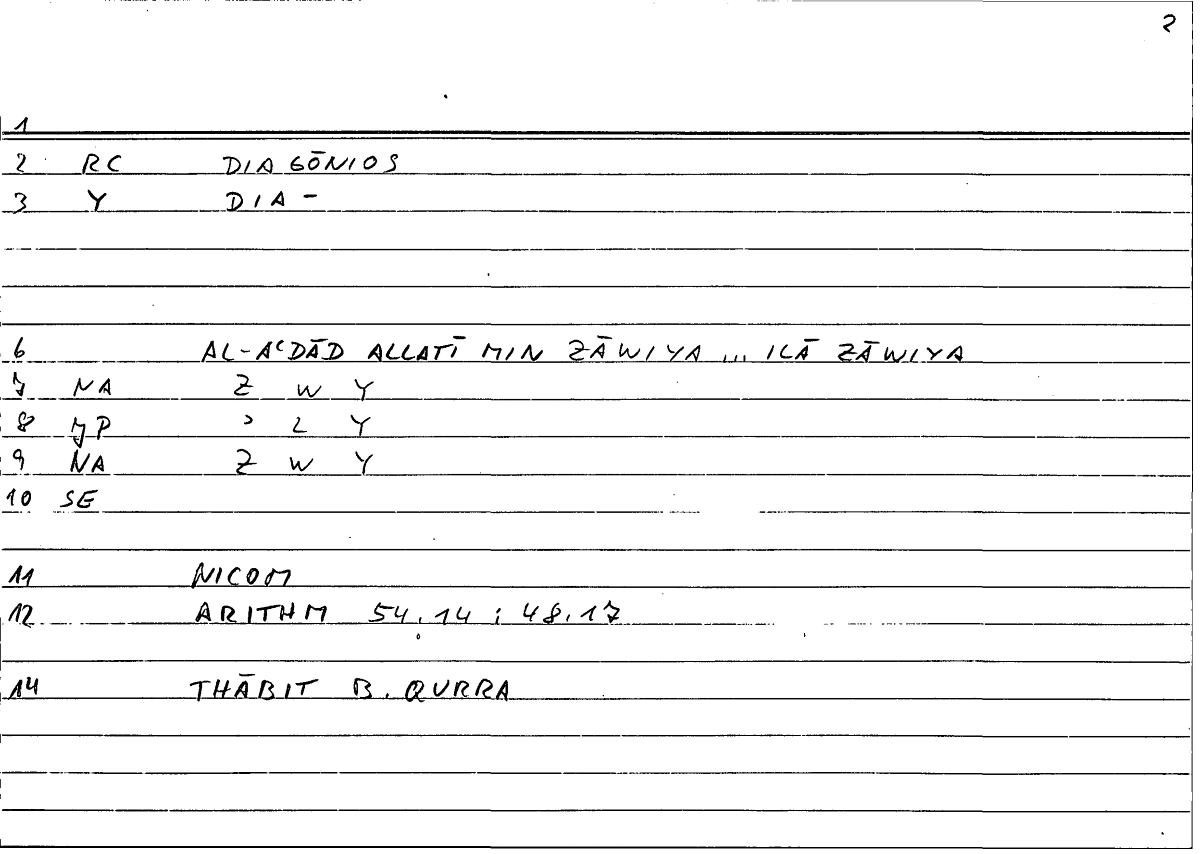 2
1
2 RC DIAGŌNIOS
3 Y DIA -
6 AL-AʿDĀD ALLATĪ MIN ZĀWIYA ... ILĀ ZĀWIYA
7 NA Z W Y
8 ȷP ʾ L Y
9 NA Z W Y
10 SE
11 NICOM
12 ARITHM 54.14 ; 48.17
14 THĀBIT B. QURRA